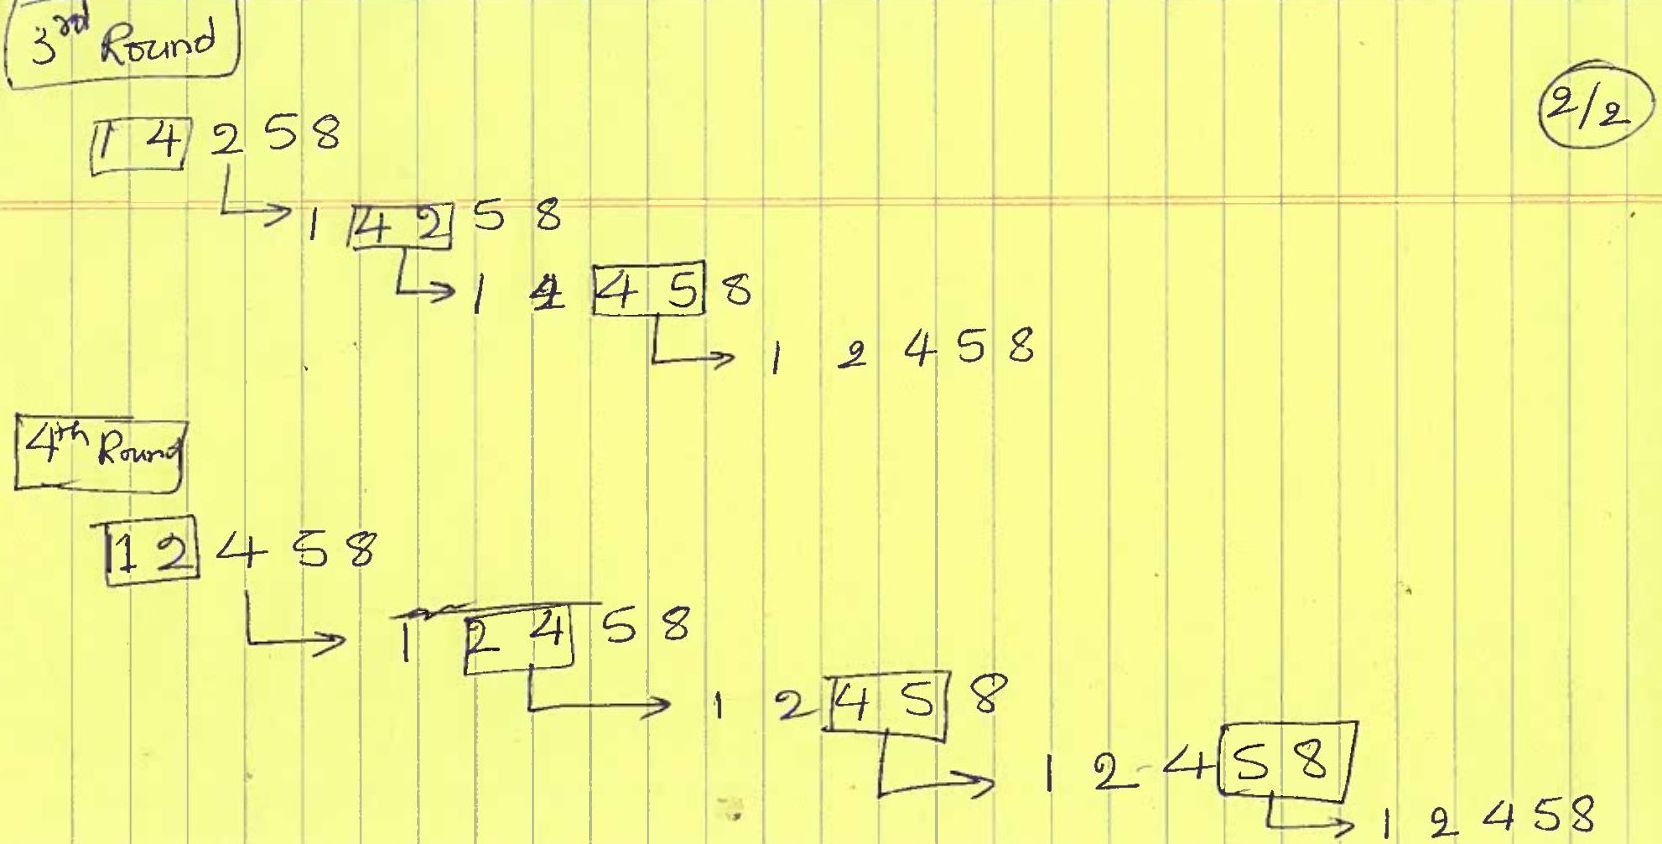 3rd Round
2/2
1 4 2 5 8
1 4 2 5 8
1 4 5 8
1 2 4 5 8
4th Round
1 2 4 5 8
1 2 4 5 8
1 2 4 5 8
1 2 4 5 8
1 2 4 5 8